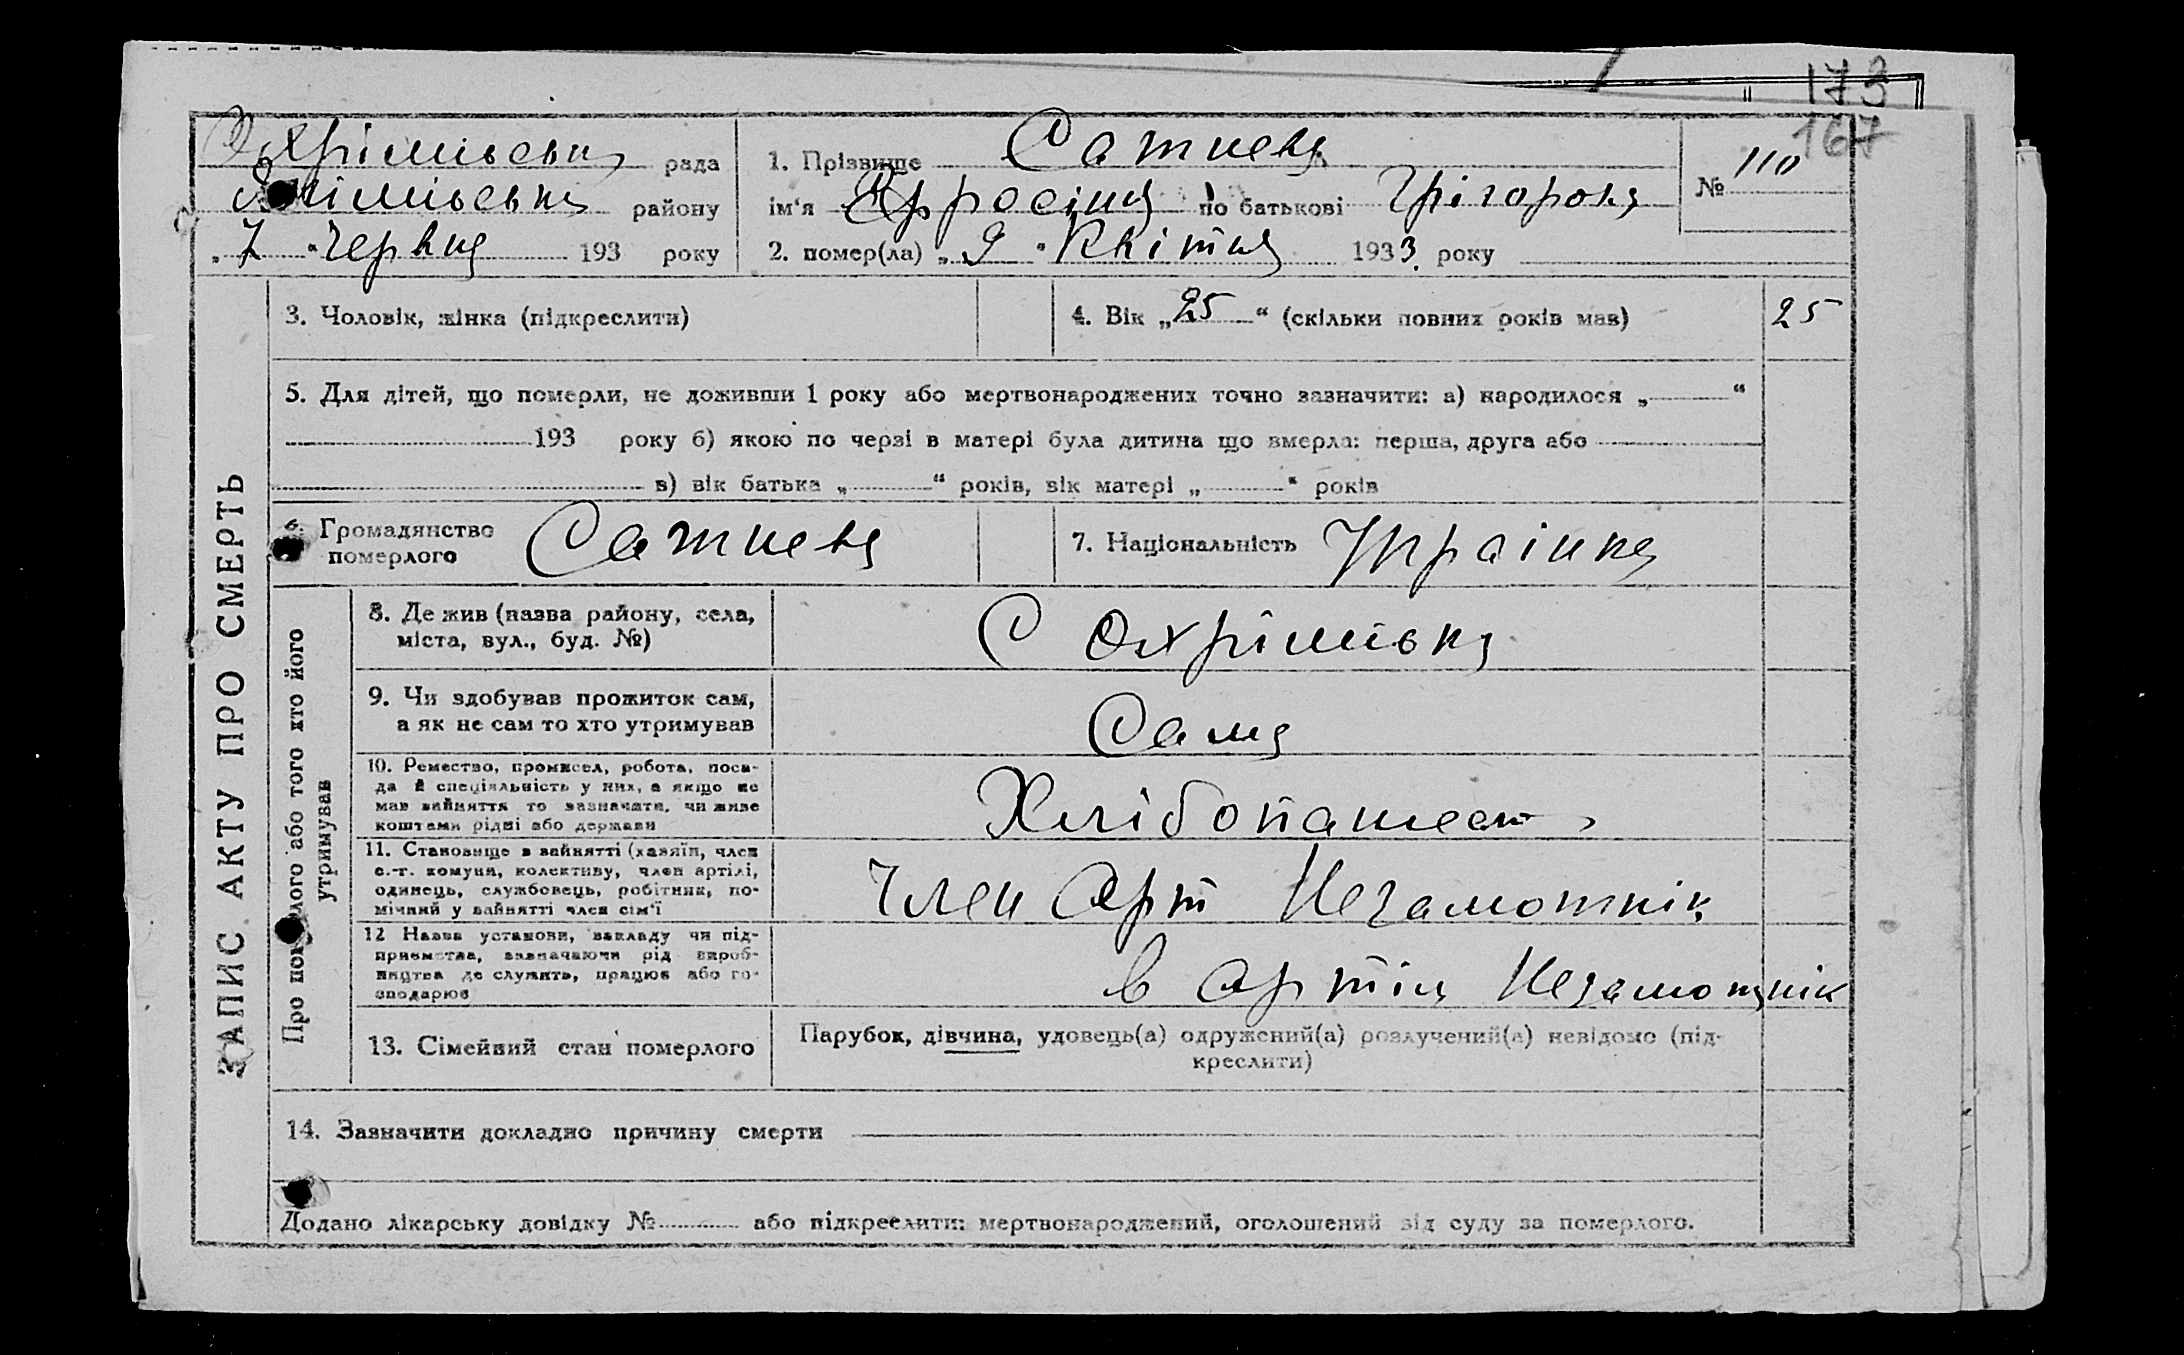 173
167
Охрімівська рада
районУ
„ 7 " Червня 193 року
1. Прізвище Сатнева
ім‘я Єфросіня по батькові Грігоровна
2. помер(ла) „ 9 " Квітня 1933 року
№ 110
ЗАПИС АКТУ ПРО СМЕРТЬ
3. Чоловік, жінка (підкреслити)
4. Вік „25“ (скільки повних років мав)
25
5. Для дітей, що померли, не доживши 1 року або мертвонароджених точно зазначити: а) народилося „ “
193 року б) якою по черзі в матері була дитина що вмерла: перша, друга або
в) вік батька „ “ років, вік матері „ “ років
6. Громадянство
померлого
Сатнева
7. Національність Українка
Про померлого або того хто його
утримував
8. Де жив (назва району, села,
міста, вул., буд. №)
С Охрімівка
9. Чи здобував прожиток сам,
а як не сам то хто утримував
Сама
10. Ремество, промисел, робота, поса-
да й спеціяльність у них, а якщо не
мав зайняття то зазначити, чи живе
коштами рідні або держави
Хлібопашест
11. Становище в зайнятті (хазяїн, член
с.-г. комуни, колективу, член артілі,
одинець, службовець, робітник, по-
мічний у зайнятті член сім'ї
Член Арт Незаможнік
12 Назва установи, закладу чи під-
приємства, зазначаючи рід вироб-
ництва де служить, працює або го-
сподарює
в артіл Незаможнік
13. Сімейний стан померлого
Парубок, дівчина, удовець(а) одружений(а) розлучений(а) невідомо (під-
креслити)
14. Зазначити докладно причину смерти
Додано лікарську довідку № або підкреслити: мертвонароджений, оголошений від суду за померлого.